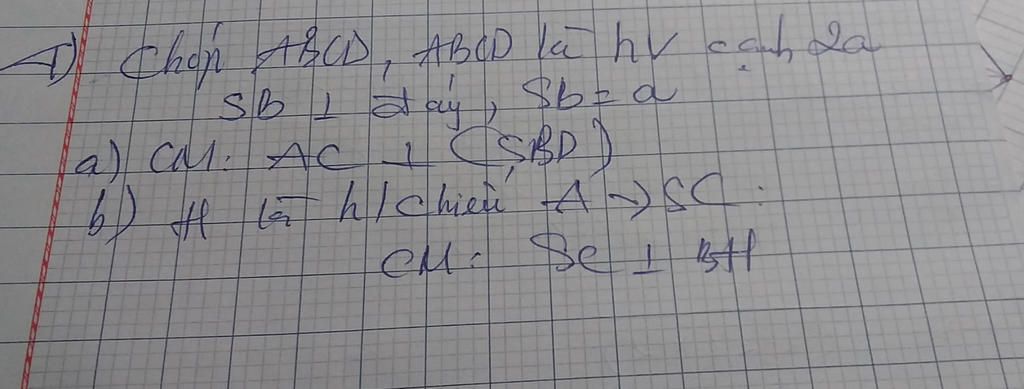 1) Chóp ABCD, ABCD là hv cạnh 2a
SB ⊥ đáy, SB = a
a) CM: AC ⊥ (SBD)
b) H là h/chiếu A → SC.
CM: SC ⊥ BH